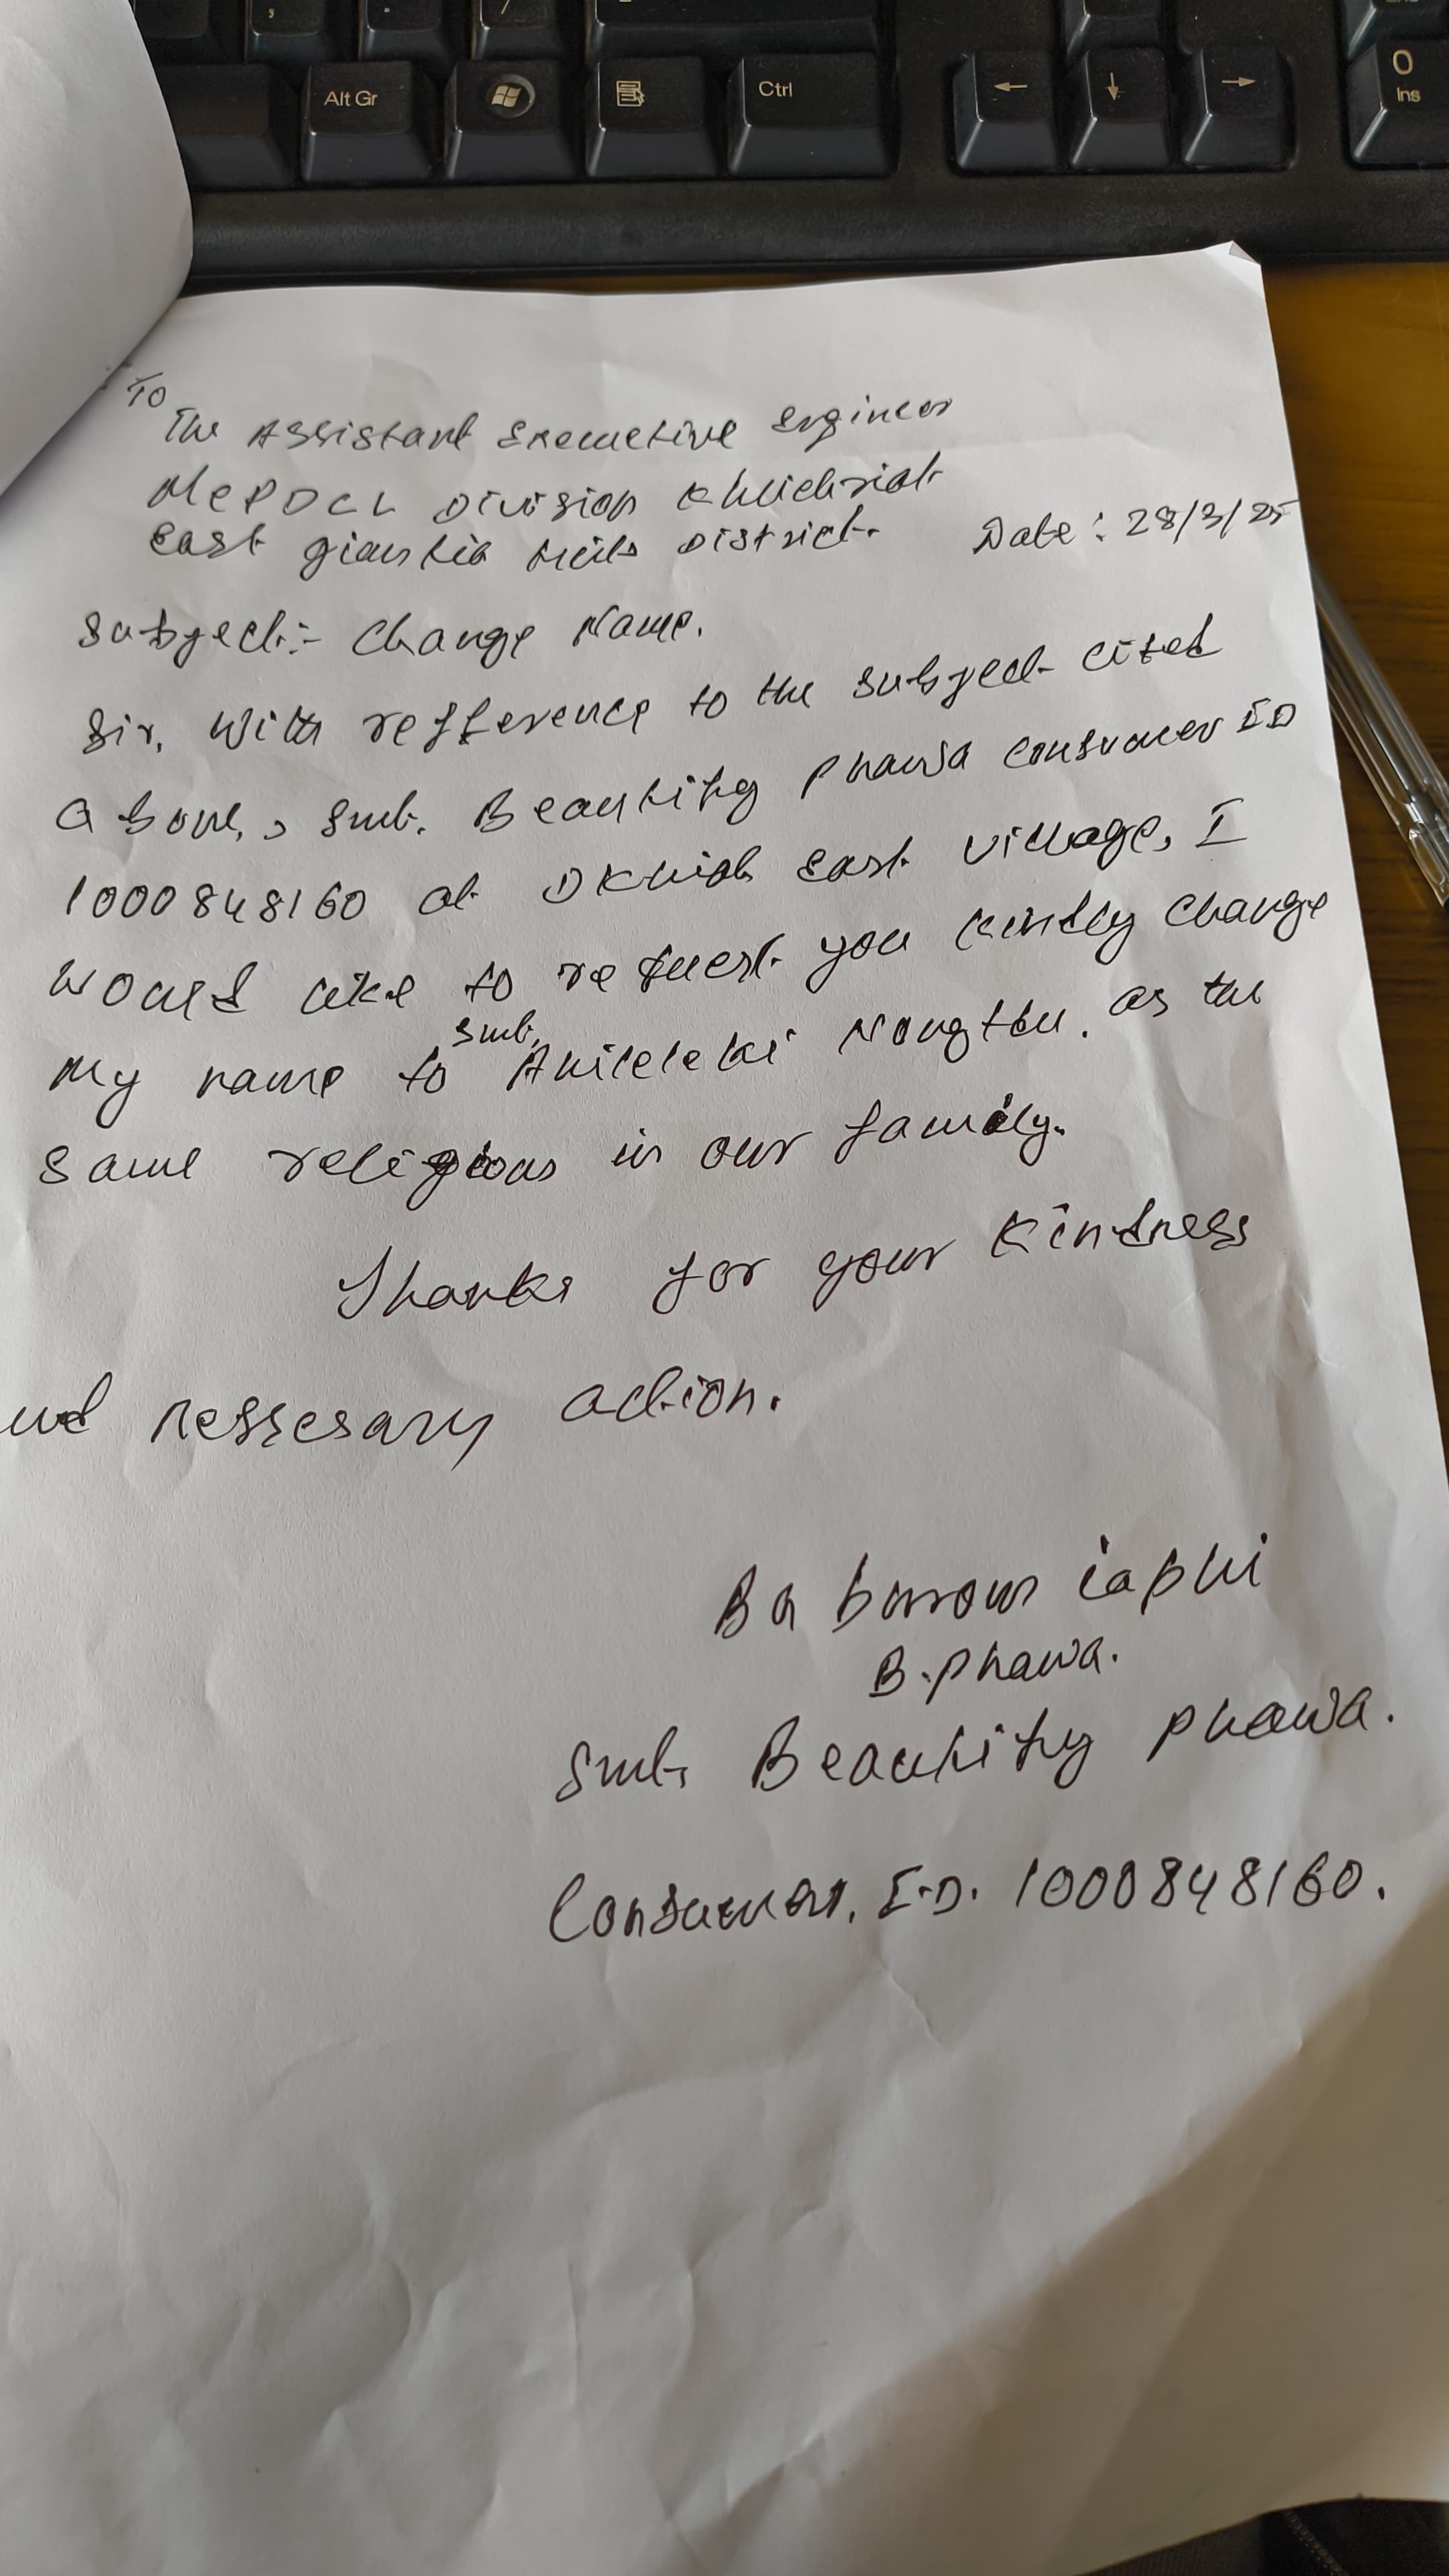 Alt Gr
Ctrl
0
Ins
To
The Assistant Executive Engineer
MePDCL Division Khliehriat
East Giantia Hills District.
Date : 28/3/25
Subject:- Change Name.
Sir, With refference to the subject cited
above, , Smt. Beautifty Phawa Consumer ID
1000848160 at Dkhiah East Village, I
Would like to request you kindly change
My name to Smt. Nongtdu. as the
same religious in our family.
Thanks for your Kindness
and nessesary action.
Ba burom iaphi
B. Phawa.
Smt. Beautifty Phawa.
Consumer. I.D. 1000848160.